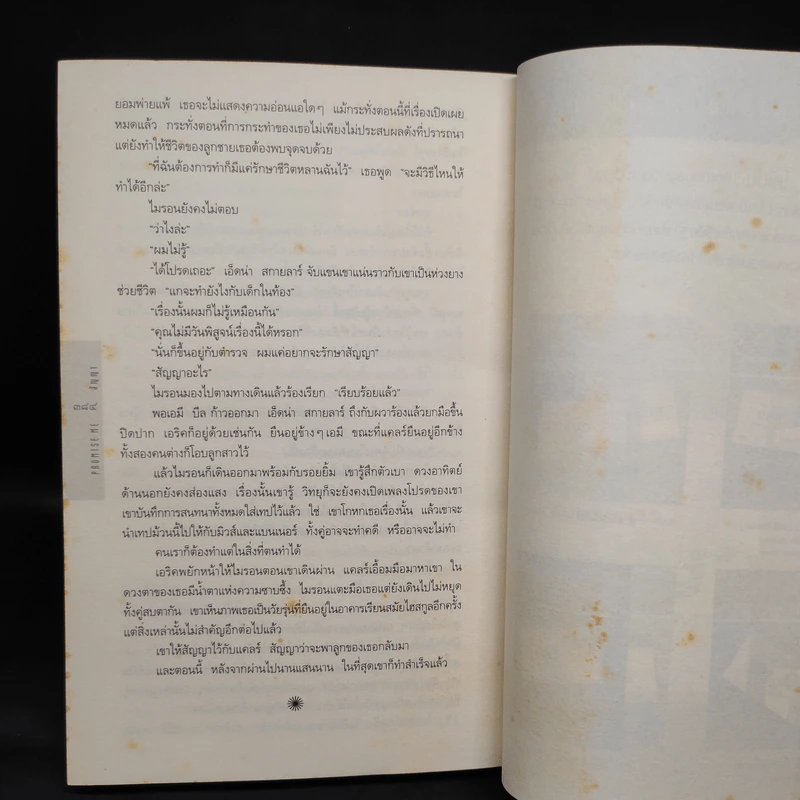 ยอมพ่ายแพ้ เธอจะไม่แสดงความอ่อนแอใดๆ แม้กระทั่งตอนนี้ที่เรื่องเปิดเผย
หมดแล้ว กระทั่งตอนที่การกระทำของเธอไม่เพียงไม่ประสบผลดังที่ปรารถนา
แต่ยังทำให้ชีวิตของลูกชายเธอต้องพบจุดจบด้วย
"ที่ฉันต้องการทำก็มีแค่รักษาชีวิตหลานฉันไว้" เธอพูด "จะมีวิธีไหนให้
ทำได้อีกล่ะ"
ไมรอนยังคงไม่ตอบ
"ว่าไงล่ะ"
"ผมไม่รู้"
"ได้โปรดเถอะ" เอ็ดน่า สกายลาร์ จับแขนเขาแน่นราวกับเขาเป็นห่วงยาง
ช่วยชีวิต "แกจะทำยังไงกับเด็กในท้อง"
"เรื่องนั้นผมก็ไม่รู้เหมือนกัน"
"คุณไม่มีวันพิสูจน์เรื่องนี้ได้หรอก"
"นั่นก็ขึ้นอยู่กับตำรวจ ผมแค่อยากจะรักษาสัญญา"
"สัญญาอะไร"
ไมรอนมองไปตามทางเดินแล้วร้องเรียก "เรียบร้อยแล้ว"
พอเอมี บีล ก้าวออกมา เอ็ดน่า สกายลาร์ ถึงกับผวาร้องแล้วยกมือขึ้น
ปิดปาก เอริคก็อยู่ด้วยเช่นกัน ยืนอยู่ข้างๆ เอมี ขณะที่แคลร์ยืนอยู่อีกข้าง
ทั้งสองคนต่างก็โอบลูกสาวไว้
แล้วไมรอนก็เดินออกมาพร้อมกับรอยยิ้ม เขารู้สึกตัวเบา ดวงอาทิตย์
ด้านนอกยังคงส่องแสง เรื่องนั้นเขารู้ วิทยุก็จะยังคงเปิดเพลงโปรดของเขา
เขาบันทึกการสนทนาทั้งหมดใส่เทปไว้แล้ว ใช่ เขาโกหกเธอเรื่องนั้น แล้วเขาจะ
นำเทปม้วนนี้ไปให้กับมิวส์และแบนเนอร์ ทั้งคู่อาจจะทำคดี หรืออาจจะไม่ทำ
คนเราก็ต้องทำแต่ในสิ่งที่ตนทำได้
เอริคพยักหน้าให้ไมรอนตอนเขาเดินผ่าน แคลร์เอื้อมมือมาหาเขา ใน
ดวงตาของเธอมีน้ำตาแห่งความซาบซึ้ง ไมรอนแตะมือเธอแต่ยังเดินไปไม่หยุด
ทั้งคู่สบตากัน เขาเห็นภาพเธอเป็นวัยรุ่นที่ยืนอยู่ในอาคารเรียนสมัยไฮสกูลอีกครั้ง
แต่สิ่งเหล่านั้นไม่สำคัญอีกต่อไปแล้ว
เขาให้สัญญาไว้กับแคลร์ สัญญาว่าจะพาลูกของเธอกลับมา
และตอนนี้ หลังจากผ่านไปนานแสนนาน ในที่สุดเขาก็ทำสำเร็จแล้ว
PROMISE ME ๓๘๔ สัญญา